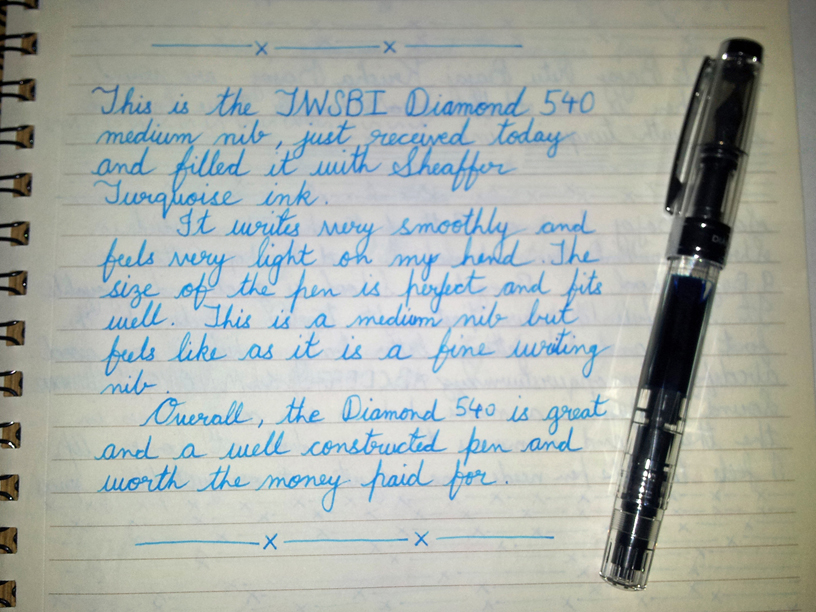 This is the TWSBI Diamond 540
medium nib, just received today
and filled it with Sheaffer
Turquoise ink.
It writes very smoothly and
feels very light on my hand. The
size of the pen is perfect and fits
well. This is a medium nib but
feels like as it is a fine writing
nib.
Overall, the Diamond 540 is great
and a well constructed pen and
worth the money paid for.